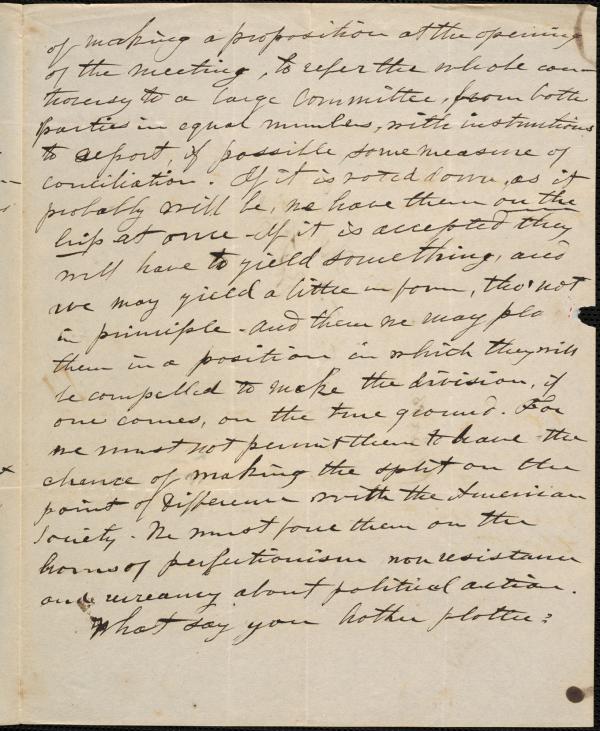 of making a proposition at the opening
of the meeting, to refer the whole con-
troversy to a large Committee, from both
parties in equal numbers, with instructions
to report, if possible some measure of
conciliation. If it is voted down, as it
probably will be, we have them on the
hip at once - If it is accepted they
will have to yield something, and
we may yield a little in form, tho' not
in principle - and then we may pla
them in a position in which they will
be compelled to make the division, if
one comes, on the true ground. For
we must not permit them to have the
chance of making the split on the
point of difference with the American
Society - We must force them on the
horns of perfectionism non resistance
and recreancy about political action.
What say you brother plotter?